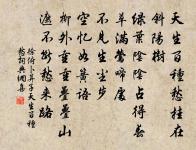 天生百種愁挂在
斜陽樹
綠葉陰陰占得春
草滿鶯啼處
不見生塵步
空憶如簧語
柳外重重疊疊山
遮不斷愁來路
徐俯卜算子天生百種
愁詞典網集